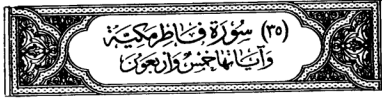 (٣٥) سُورَة فَاطِر مَكِيَّة
وَآيَاتهَا خَمْسٌ وَأَرْبَعُونَ